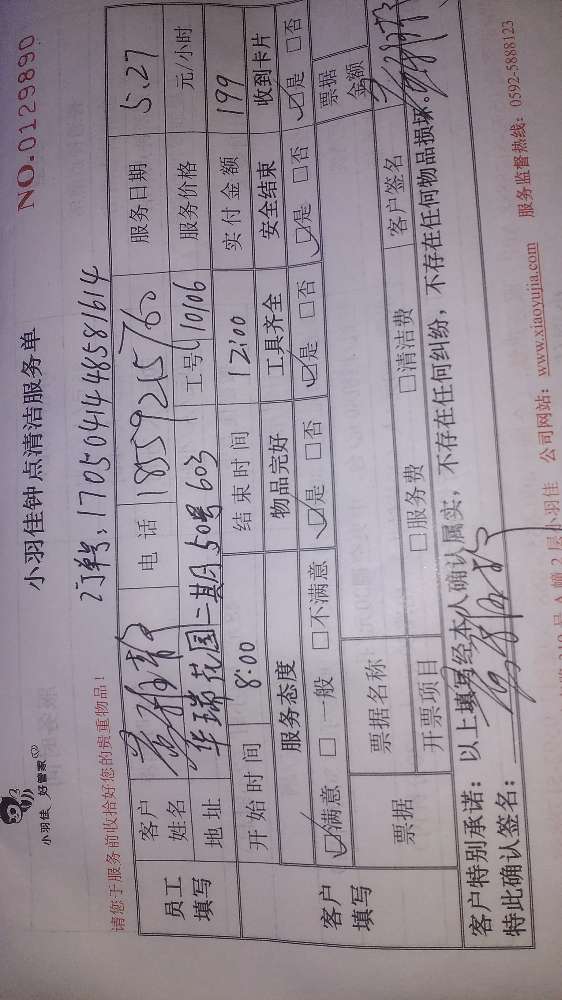 小羽佳 好管家
小羽佳钟点清洁服务单
NO.0129890
订单号：170504144858 1614
请您于服务前收拾好您的贵重物品！
员工填写
客户姓名
电话 18559215760
服务日期 5.27
地址 华瑞花园二期50号603
工号 10106
服务价格 元/小时
客户填写
开始时间 8:00
结束时间 12:00
实付金额 199
服务态度
物品完好
工具齐全
安全结束
收到卡片
☑满意 □一般 □不满意
☑是 □否
☑是 □否
☑是 □否
☑是 □否
票据
票据名称
票据金额
开票项目
□服务费 □清洁费
客户签名
客户特别承诺：以上填写经本人确认属实，不存在任何纠纷，不存在任何物品损坏。
特此确认签名：
号A幢2层小羽佳 公司网站：www.xiaoyujia.com 服务监督热线：0592-5888123